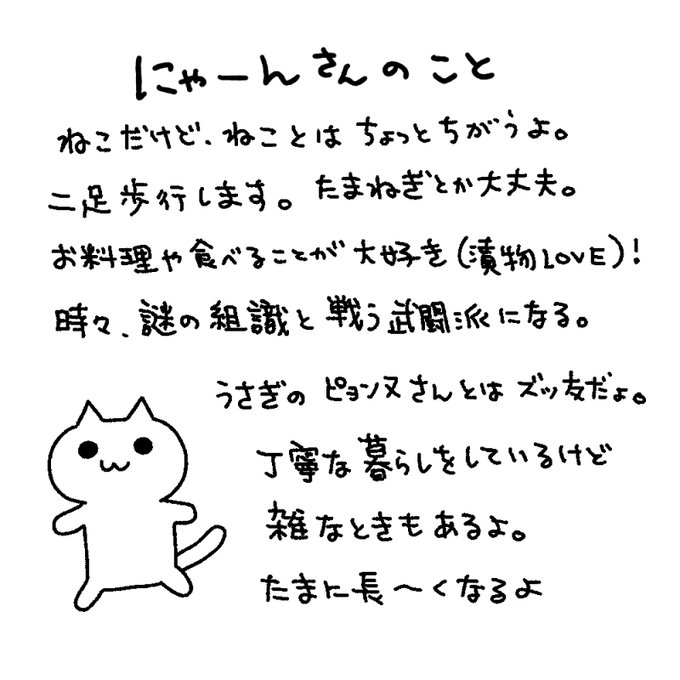 にゃーんさんのこと
ねこだけど、ねことはちょっとちがうよ。
二足歩行します。たまねぎとか大丈夫。
お料理や食べることが大好き(漬物LOVE)!
時々、謎の組織と戦う武闘派になる。
うさぎのピョンヌさんとはズッ友だょ。
丁寧な暮らしをしているけど
雑なときもあるよ。
たまに長〜くなるよ